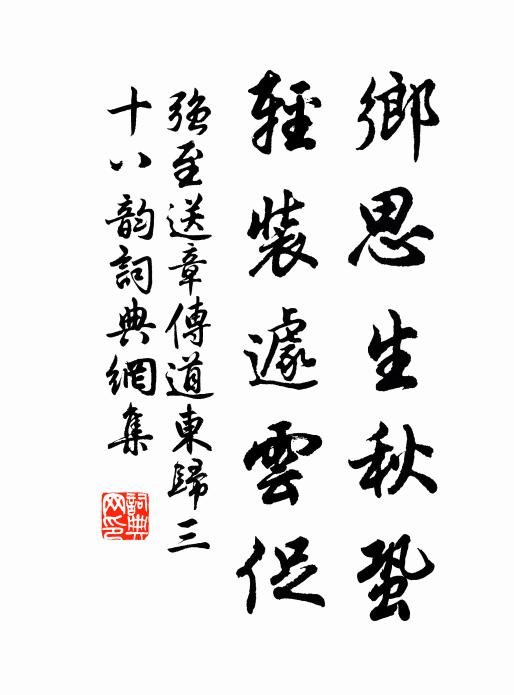 鄉思生秋蛩
輕裝遽雲促
強至送章傳道東歸三
十八韵詞典網集
詞典网印